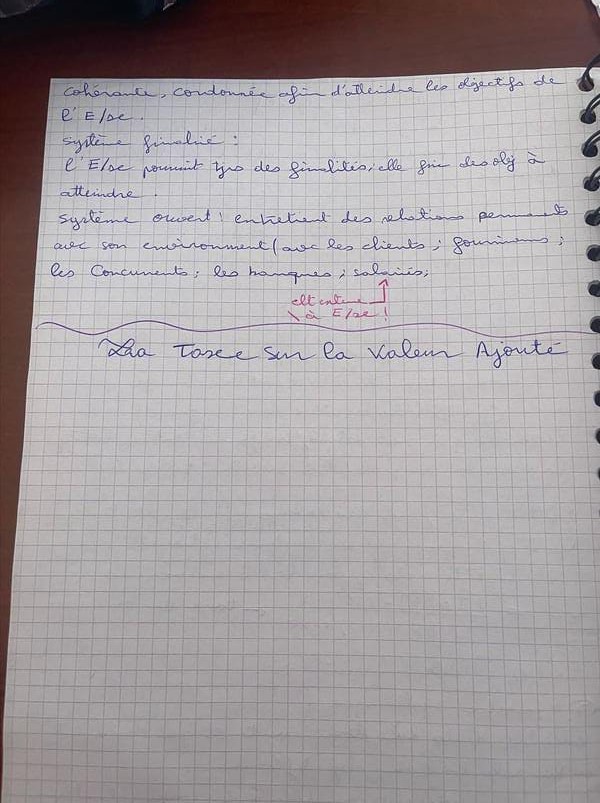 cohérante, cordonnée afin d'atteindre les objectifs de
l'E/se.
Système finalisé :
l'E/se poursuit tjrs des finalités, elle fixe des obj à
atteindre.
Système ouvert : entretient des relations permanents
avec son environnment (avec les clients ; fournisseurs ;
les Concurrents ; les banques ; salariés ;
elt interne
à E/se !
La Taxe sur la Valeur Ajouté